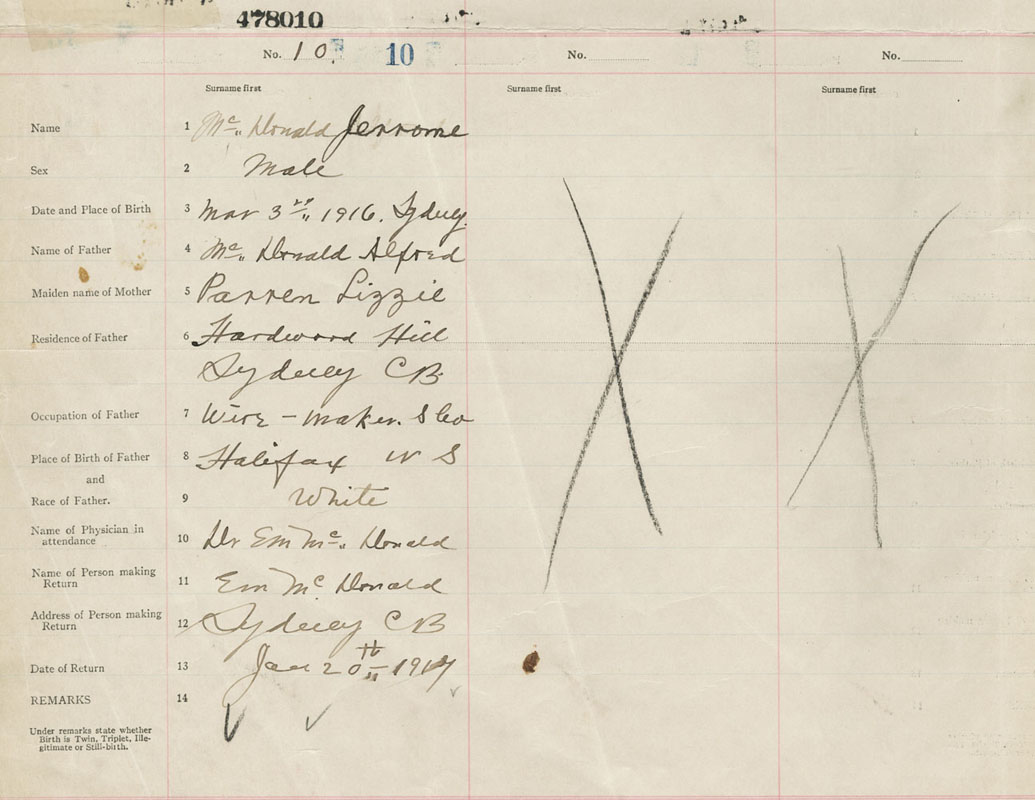 478010
No. 10. 10 No. No.
Surname first Surname first Surname first
Name 1 Mc. Donald Jerrome
Sex 2 Male
Date and Place of Birth 3 Mar 3rd, 1916. Sydney.
Name of Father 4 Mc. Donald Alfred
Maiden name of Mother 5 Parren Lizzie
Residence of Father 6 Hardwood Hill
Sydney CB.
Occupation of Father 7 Wire - maker. S Co
Place of Birth of Father 8 Halifax N S
and
Race of Father. 9 White
Name of Physician in
attendance 10 Dr Em Mc. Donald
Name of Person making
Return 11 Em Mc. Donald
Address of Person making
Return 12 Sydney CB
Date of Return 13 Jan 20th 1917
REMARKS 14
Under remarks state whether
Birth is Twin, Triplet, Ille-
gitimate or Still-birth.